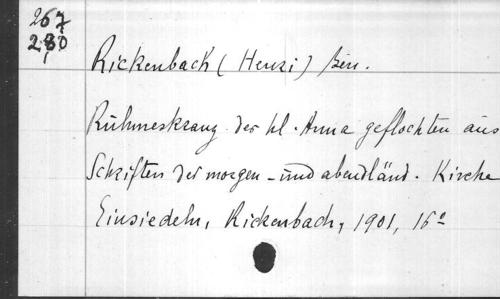 267
280
Rickenbach (Henri) Ben.
Ruhmeskranz der hl. Anna geflochten aus
Schriften der morgen- und abendländ. Kirche
Einsiedeln, Rickenbach, 1901, 16°